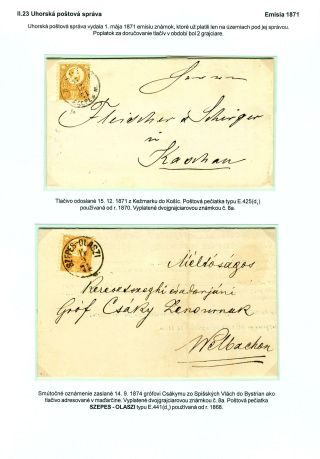 II.23 Uhorská poštová správa
Emisia 1871
Uhorská poštová správa vydala 1. mája 1871 emisiu známok, ktoré už platili len na územiach pod jej správou.
Poplatok za doručovanie tlačív v období bol 2 grajciare.
Herrn
Fleischer & Schirger
in
Kaschau
Tlačivo odoslané 15. 12. 1871 z Kežmarku do Košíc. Poštová pečiatka typu E.425(d,)
používaná od r. 1870. Vyplatené dvojgrajciarovou známkou č. 8a.
SZEPES-OLASZI
Méltóságos
Keresszeghi és adorjáni
Gróf Csáky Zenownak
Welbachon
Smútočné oznámenie zaslané 14. 9. 1874 grófovi Csákymu zo Spišských Vlách do Bystrian ako
tlačivo adresované v maďarčine. Vyplatené dvojgrajciarovou známkou č. 8a. Poštová pečiatka
SZEPES - OLASZI typu E.441(d,) používaná od r. 1868.